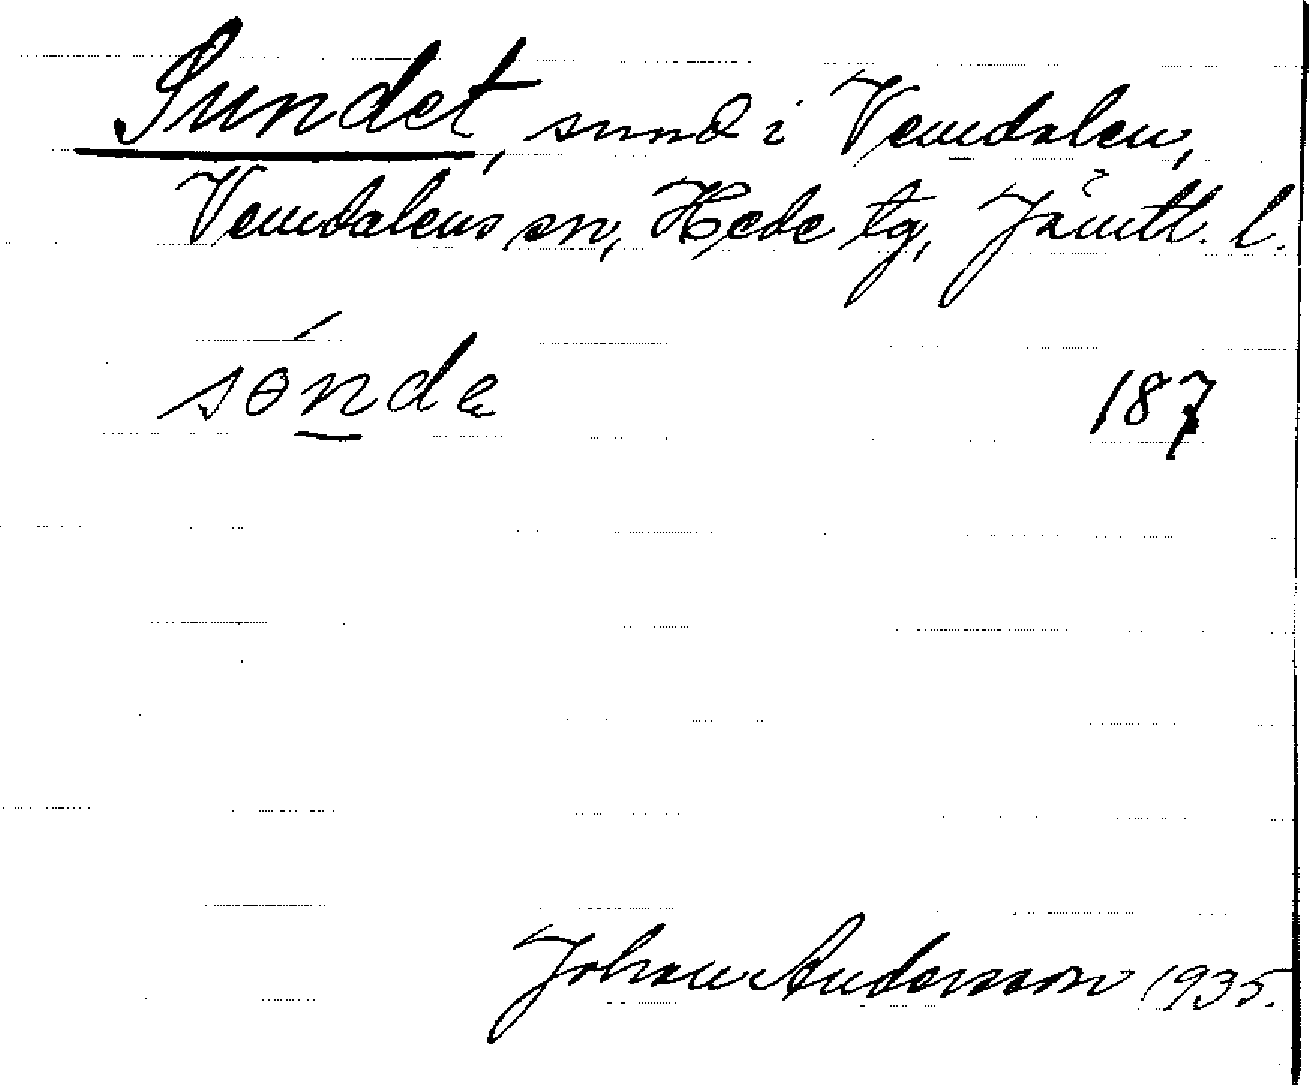 Sundet, sund i Vemdalen,
Vemdalens sn, Hede tg, Jämtl. l.
sɵ́nde 187
Johan Andersson 1935.